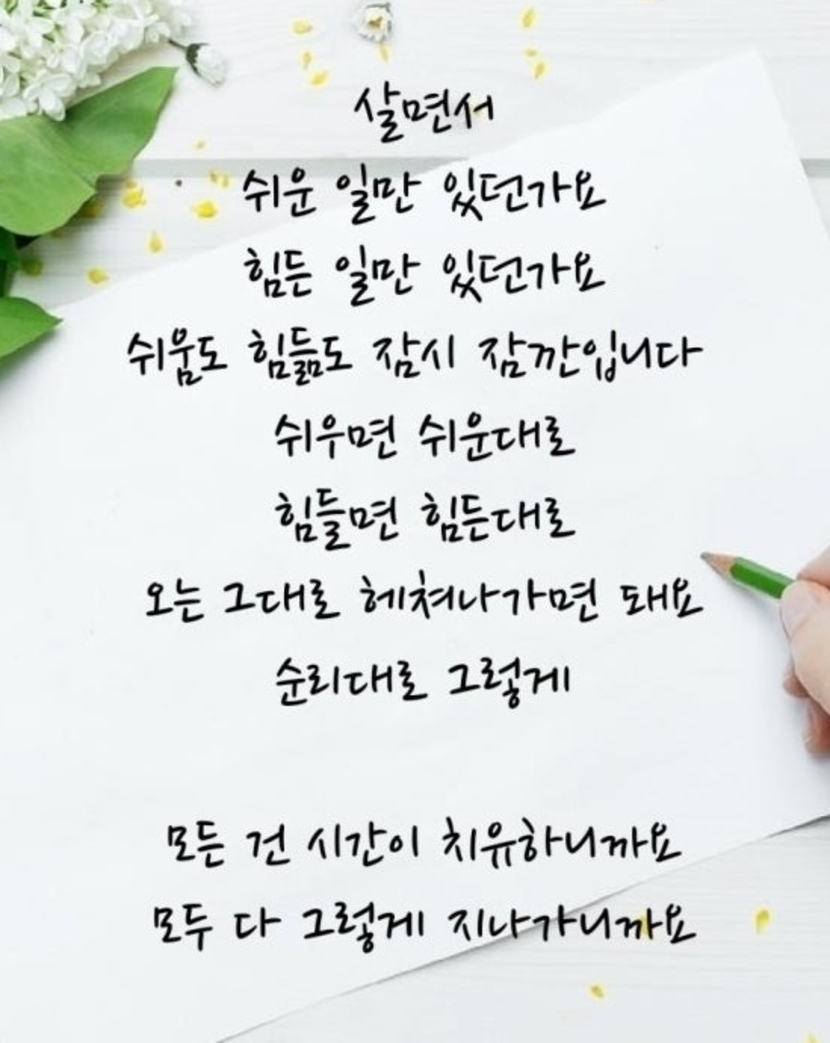 살면서
쉬운 일만 있던가요
힘든 일만 있던가요
쉬움도 힘듦도 잠시 잠깐입니다
쉬우면 쉬운대로
힘들면 힘든대로
오는 그대로 헤쳐나가면 돼요
순리대로 그렇게
모든 건 시간이 치유하니까요
모두 다 그렇게 지나가니까요